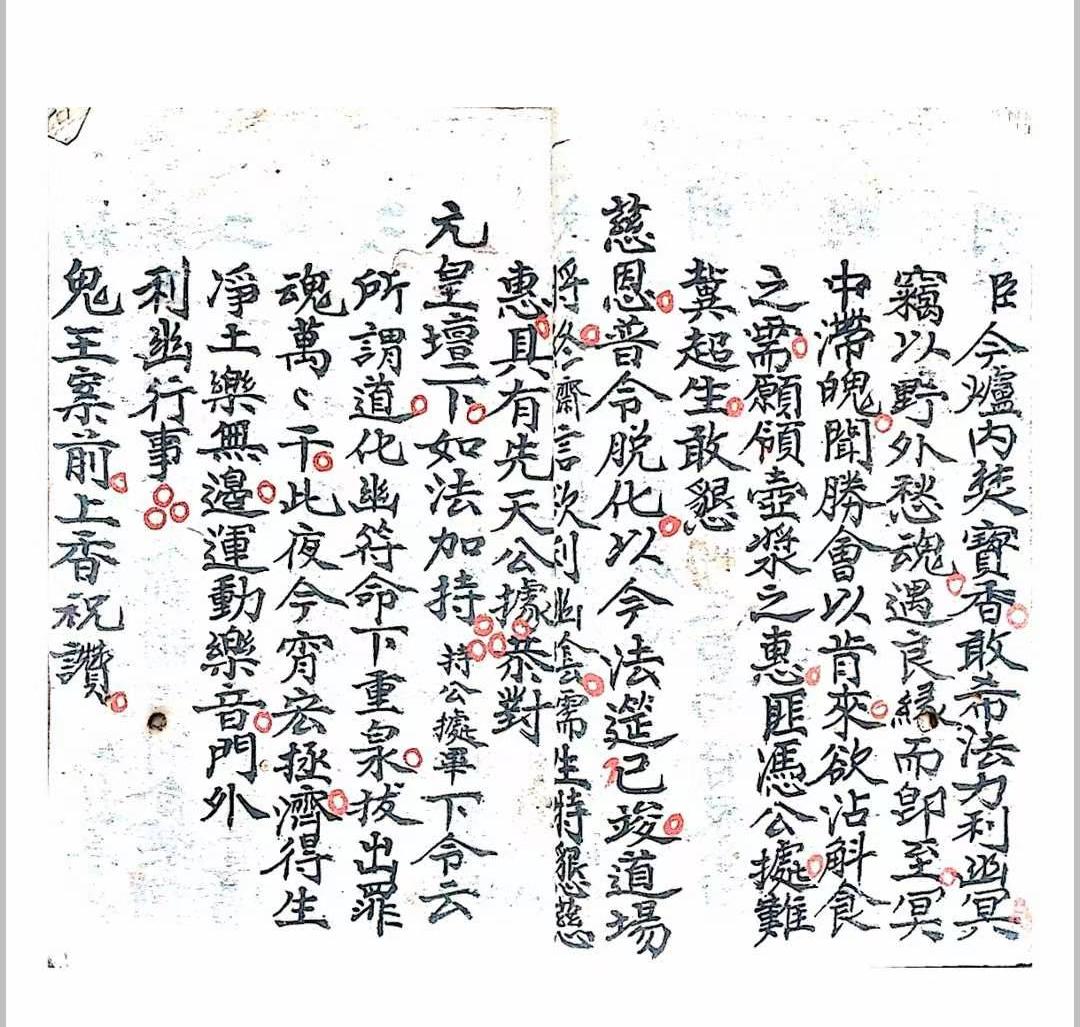 臣今爐內焚寶香敢希法力利幽冥
竊以野外愁魂遇良緣而即至冥
中滯魄聞勝會以肯來欲沾斛食
之需願領壺漿之惠匪憑公據難
冀超生敢懇
慈恩普令脱化以今法筵已竣道場
将終齋言欲利幽陰需生特懇慈
惠具有先天公據恭對
元皇壇下如法加持 持公據畢下令云
所謂道化幽符命下重泉拔出罪
魂萬〻千此夜今宵宏拯濟得生
凈土樂無邊運動樂音門外
利幽行事
鬼王案前上香祝讚